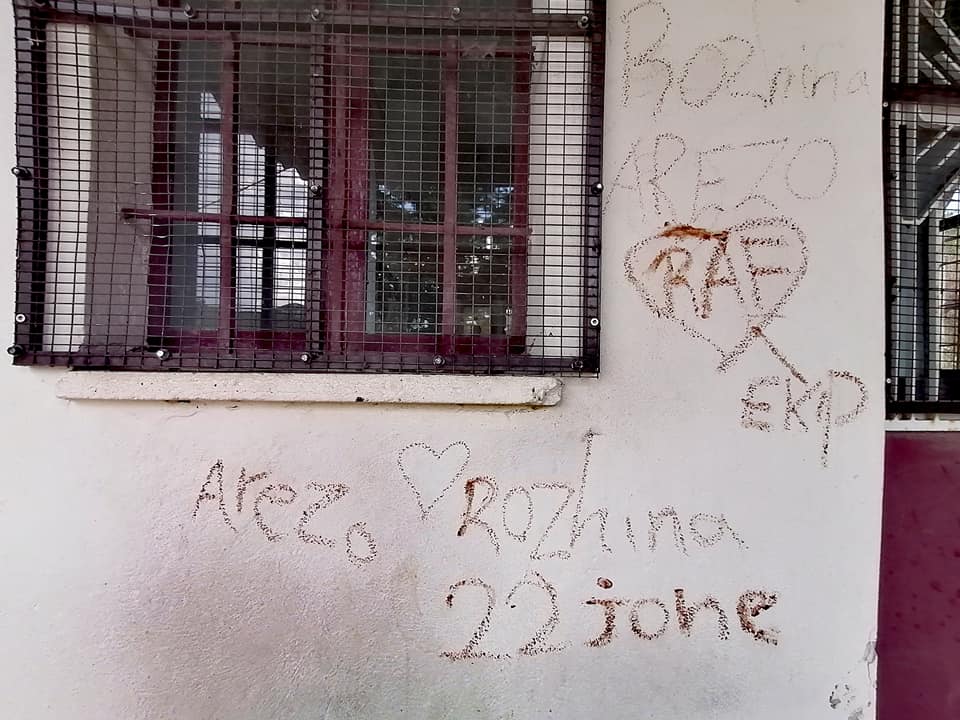 Rozhina
AREZO
RAF
EKIP
Arezo ♡ Rozhina
22 johe